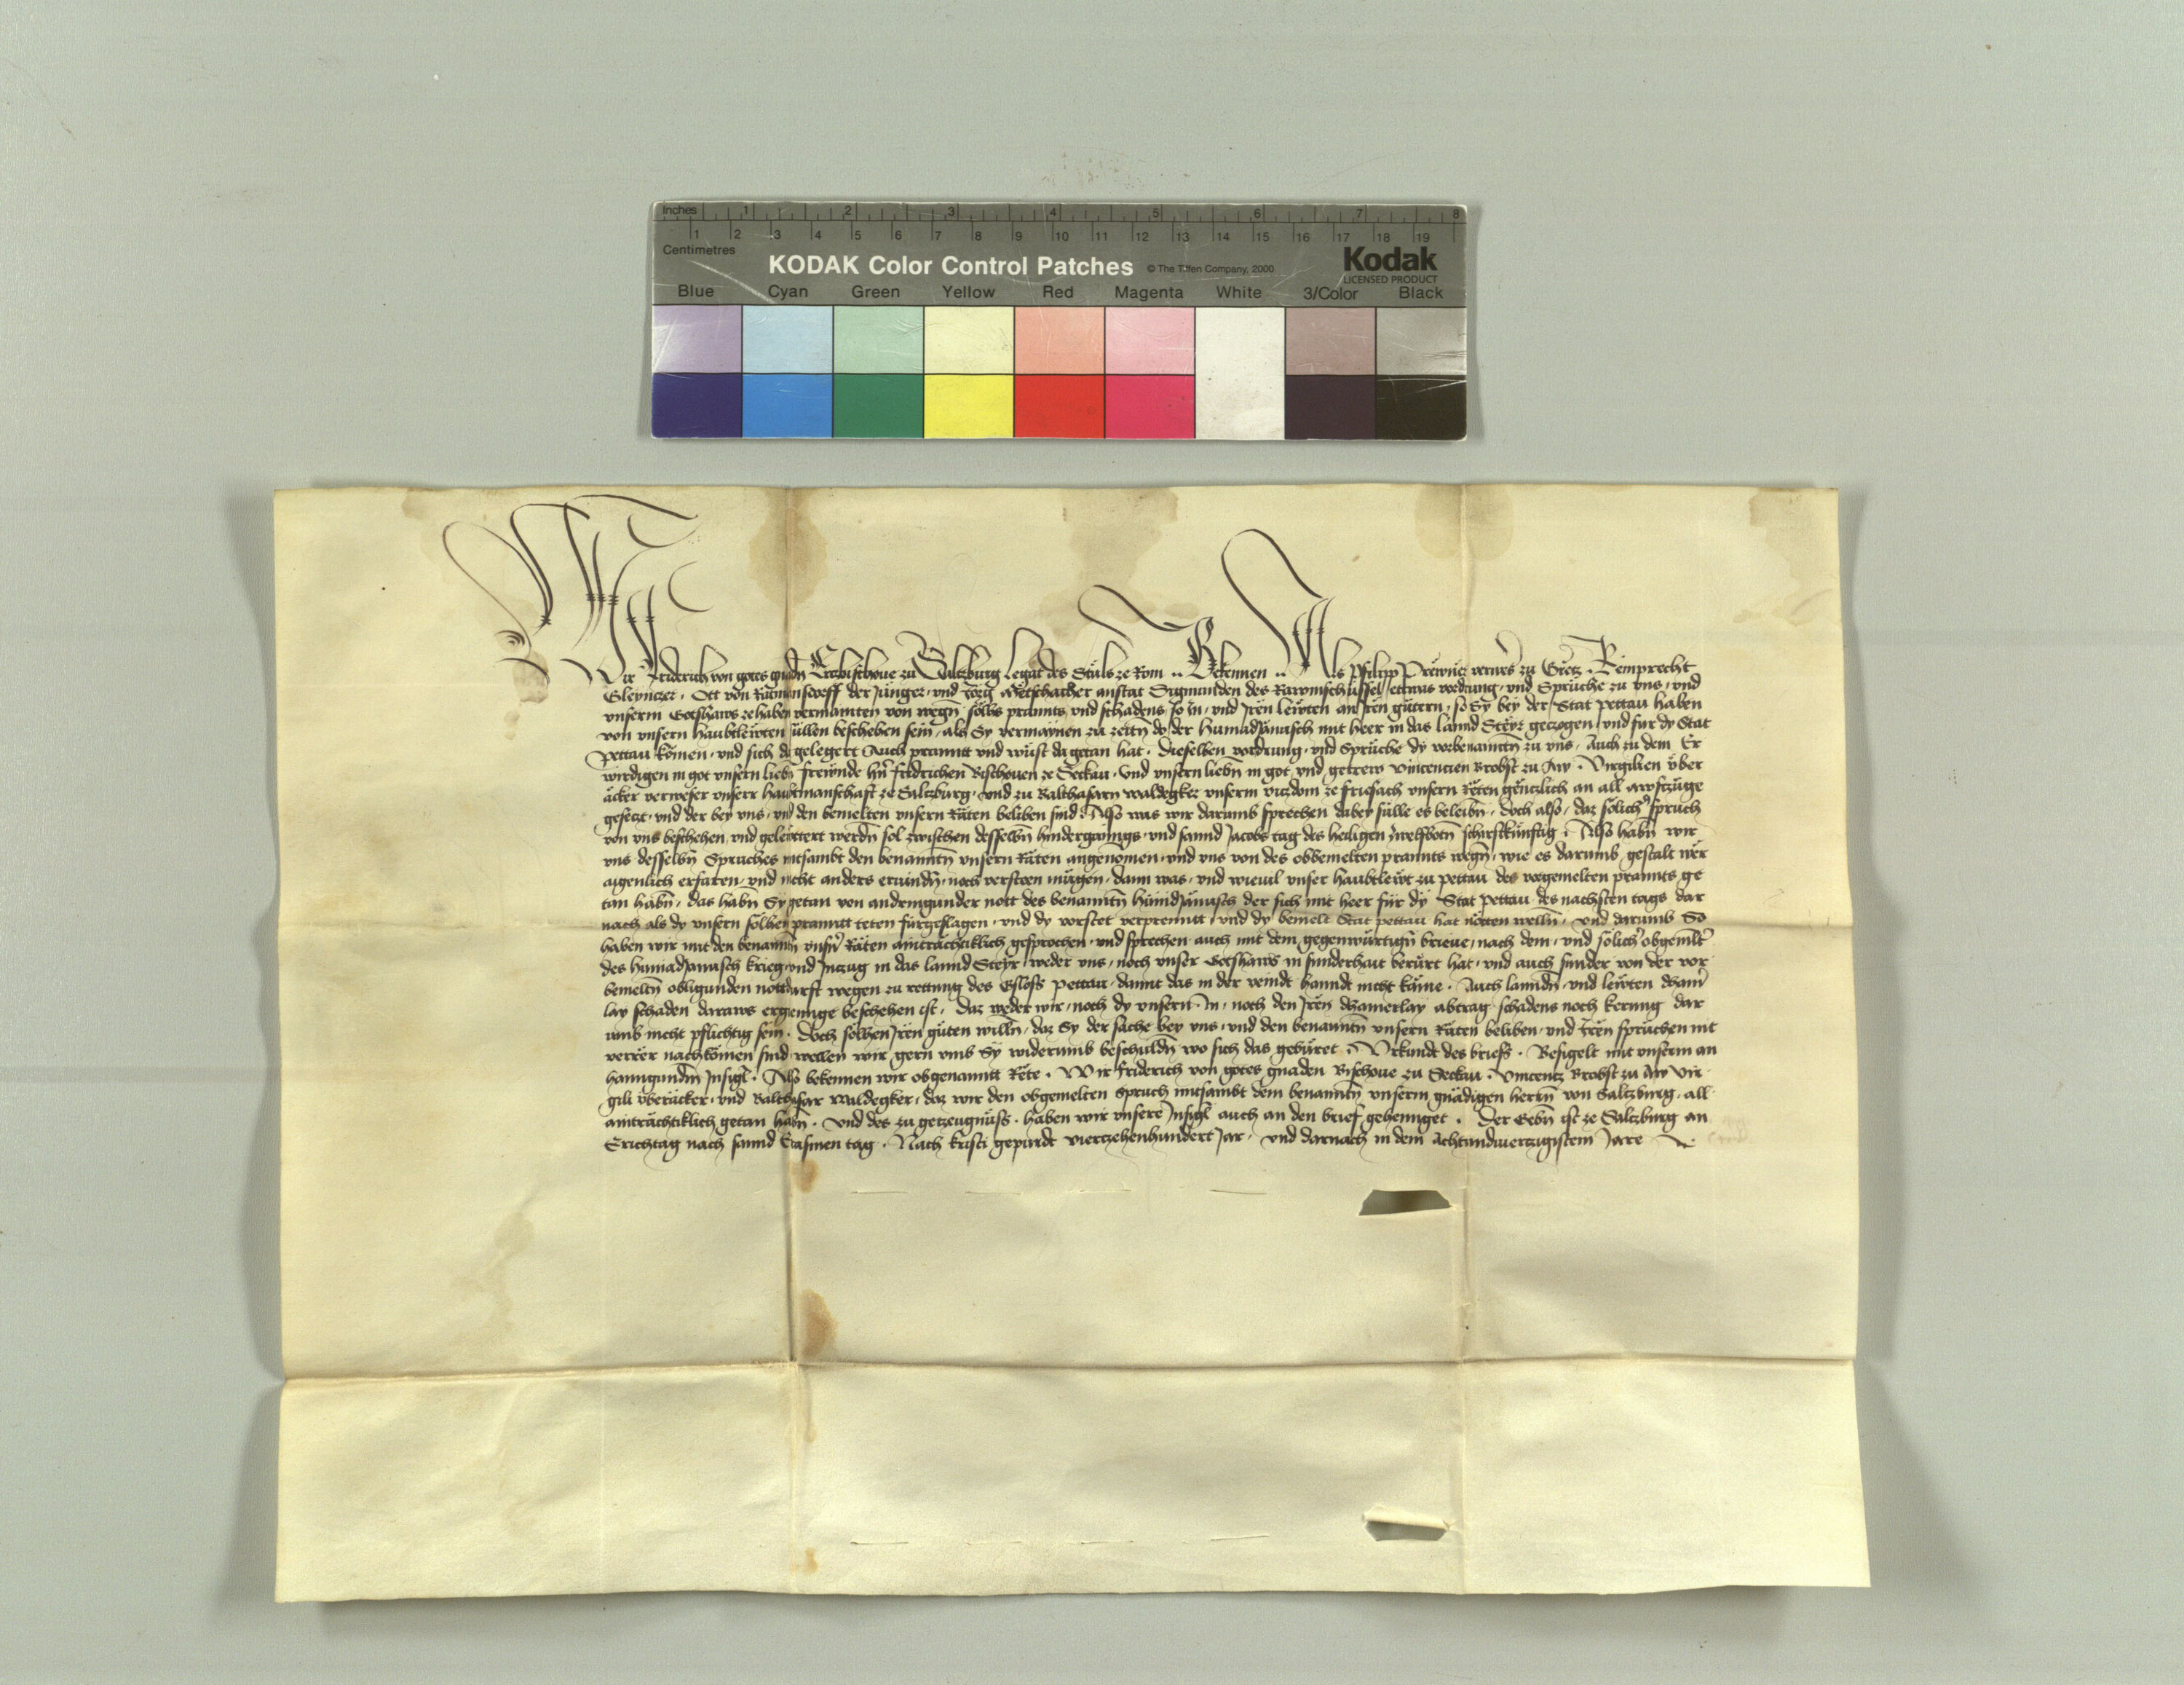 Inches 1 2 3 4 5 6 7 8
1 2 3 4 5 6 7 8 9 10 11 12 13 14 15 16 17 18 19
Centimetres
KODAK Color Control Patches © The Tiffen Company, 2000 Kodak
LICENSED PRODUCT
Blue Cyan Green Yellow Red Magenta White 3/Color Black
Wir Friderich von gotes gnadn̄ Ertzbischoue zu Saltzburg Legat des Stuls ze Rom .. Bekennen .. Als Philipp Prewner zu Gretz . Remprecht
Gleyntzer . Ott von Ratmanstorff der Junger . vnd Jorg anstat Sigmunden des etwas vordrung . vnd Spruche zu vns . vnd
vnserm Gotshaws ze haben vermainten von wegn̄ solhs prannts vnd schadens so In . vnd Iren lewten an Iren gutern . so Sy bey der Stat Pettau haben
von vnsern Haubtlewten sullen bescheben sein . als Sy vermaynen zu zeitn̄ do der Humadjanusch mit heer in das lannd Steyr getzogen . vnd fur dy Stat
Pettau komen . vnd sich da gelegert Auch pranntt vnd wust da getan hat . Dieselben vordrung . vnd Spruche dy vorbenanntn̄ zu vns . Auch zu dem Er
wirdigen in got vnserm liebn̄ frewnde hn̄ fridrichen Bischouen ze Seckau . Vnd vnsern liebn̄ in got vnd getrew Vincentien Brobst zu . Virgilien vber
äcker verweser vnserr haubtmanschaft ze Saltzburg . vnd zu Balthasarn Waldegker vnserm vitzdom ze friesach vnsern Räten gentzlich an all awsztzuge
gesetzt . vnd der bey vns . vnd den bemelten vnsern Räten beliben sind . Also was wir darumb sprechen dabey sulle es beleibn̄ . doch also . daz solicher spruch
von vns beschehen vnd gelewttert werdn̄ sol zwischen desselbn̄ hindergannngs . vnd sannd Jacobs tag des heiligen zwelfbotn̄ schirstkunftig . Also habn̄ wir
vns desselbn̄ Spruches mitsambt den benanntn̄ vnsern Räten angenomen . vnd vns von des obbemelten prannts wegn̄ . wie es darumb gestalt wer
aigenlich erfaren . vnd nicht anders eruindn̄ . noch versteen mugen . dann was . vnd wieuil vnser haubtlewt zu Pettau des vorgemelten prannts ge
tan habn̄ . das habn̄ Sy getan von andringunder nott des benanntn̄ der sich mit heer fur dy Stat Pettau des nachsten tags dar
nach als dy vnsern solhen pranntt teten furgeslagen . vnd dy vorstet verprenntt . vnd dy bemelt Stat Pettau hat nötten welln̄ . vnd darumb So
haben wir mit den benanntn̄ vnsn̄ Räten aintrachtiklich gesprochen . vnd sprechen auch mit dem gegenwurtign̄ brieue . nach dem . vnd solicher obgemelter
des Humadjanusch krieg . vnd Intzug in das lannd Steyr . weder vns . noch vnser Gotshaws in sunderhait berurt hat . vnd auch sunder von der vor
bemeltn̄ obligunden nottdurft wegen zu rettung des Gsloss Pettau . damit das in der veindt hanndt nicht käme . Auch lanndn̄ vnd lewten
lay schaden daraws erginnge beschehen ist . Daz weder wir . noch dy vnsern In . noch den Iren dhainerlay abtrag schadens noch kerung dar
umb nicht pflichtig sein . Doch solhen Iren guten willn̄ . daz Sy der sache bey vns . vnd den benanntn̄ vnsern Räten beliben . vnd Iren spruchen nit
verrer nachkomen sind wellen wir gern vmb Sy widerumb beschuldn̄ wo sich das geburet . Vrkundt des briefs . Besigelt mit vnserm an
hanngundm Insigl . Also bekennen wir obgenanntt Rete . Wir Friderich von gotes gnaden Bischoue zu Seckau . Vincentz Brobst zu Vir
gili vberäcker . vnd Balthasar Waldegker . daz wir den obgemelten spruch mitsambt dem benanntn̄ vnserm gnädigen herrn̄ von Saltzburg . all
ainträchtiklich getan habn̄ . vnd des zu getzeugnuss . haben wir vnsere Insigl auch an den brief gehennget . Der Gebn̄ ist ze Saltzburg an
Erichtag nach sannd Erasmen tag . Nach Kristi gepurdt viertzehenhundert Jar . vnd darnach in dem Achtundviertzigistem Jare